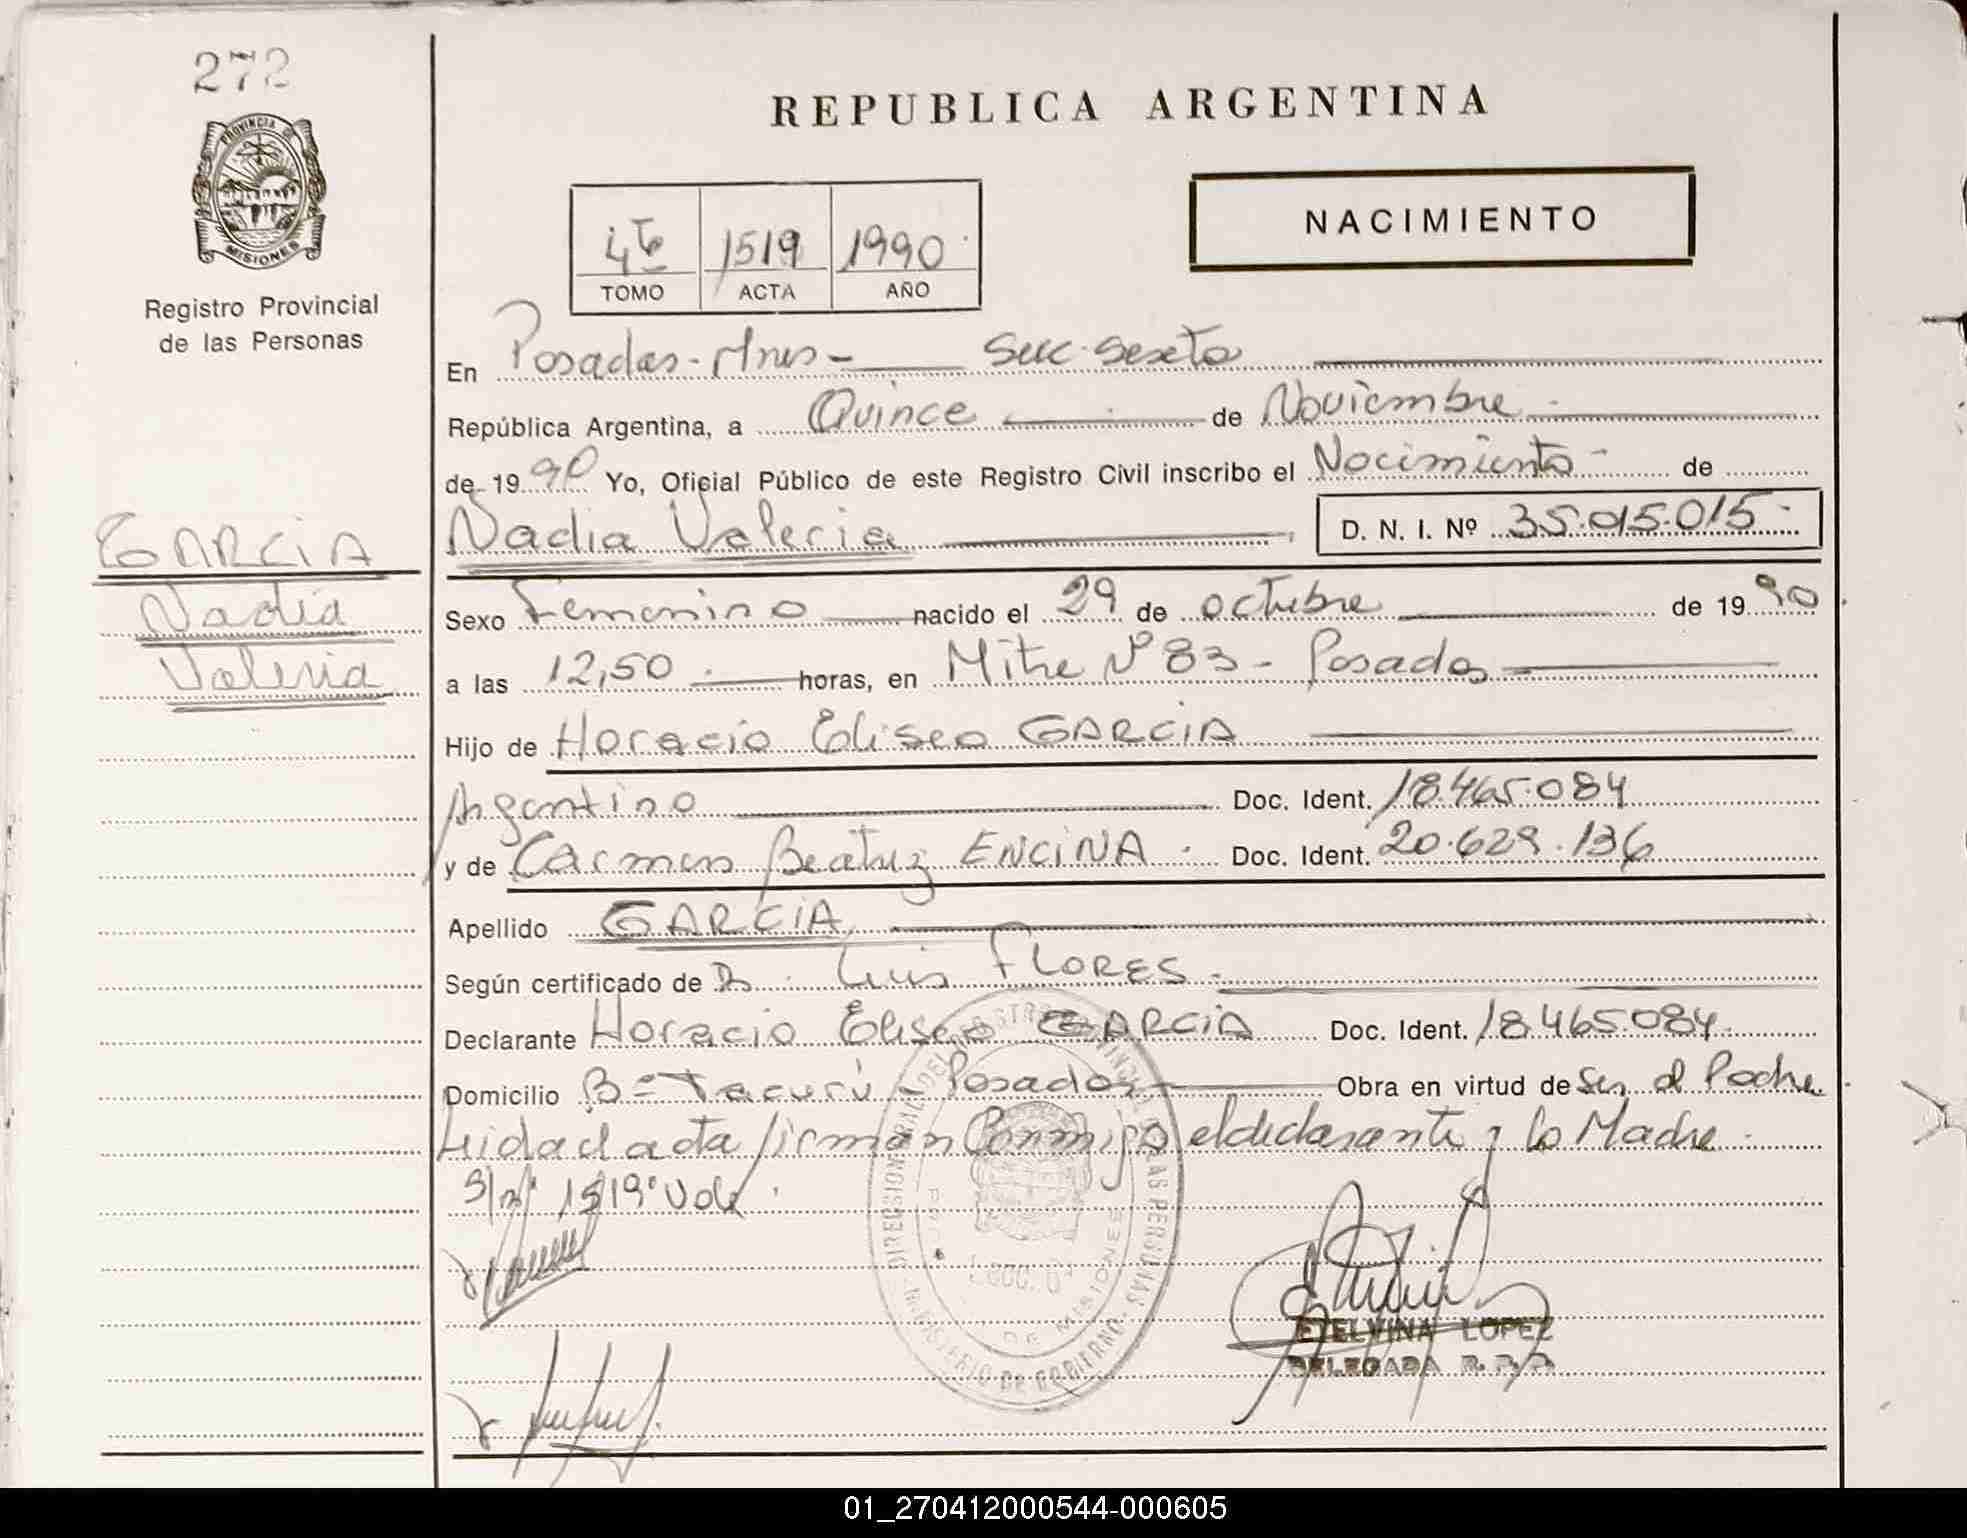 272
PROVINCIA DE
MISIONES
Registro Provincial
de las Personas
REPUBLICA ARGENTINA
NACIMIENTO
4to 1519 1990
TOMO ACTA AÑO
En Posadas - Mnes - Suc. Sexta
República Argentina, a Quince de Noviembre
de 1990 Yo, Oficial Público de este Registro Civil inscribo el Nacimiento de
Nadia Valeria D. N. I. Nº 35.015.015
GARCIA
Nadia
Valeria
Sexo Femenino nacido el 29 de octubre de 1990
a las 12,50 horas, en Mitre Nº 83 - Posadas
Hijo de Horacio Eliseo GARCIA
Argentino Doc. Ident. 18.465.084
y de Carmen Beatriz ENCINA Doc. Ident. 20.629.136
Apellido GARCIA
Según certificado de Dr. Luis FLORES
Declarante Horacio Eliseo GARCIA Doc. Ident. 18.465.084
Domicilio Bº Tacurú - Posadas Obra en virtud de Ser el Padre
Leida el acta firman Conmigo el declarante y la Madre
S/r 1519 Vale
DIRECCION GENERAL DEL REGISTRO PROVINCIAL DE LAS PERSONAS
MINISTERIO DE GOBIERNO
DE MISIONES
ETELVINA LOPEZ
DELEGADA R. P. P.
01_270412000544-000605